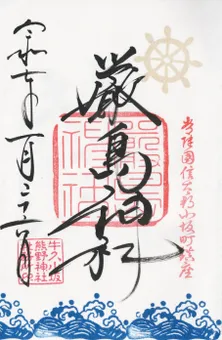 常陸國信太郡小坂町鎮座
嚴島神社
令和七年一月二十六日
牛久小坂
熊野神社